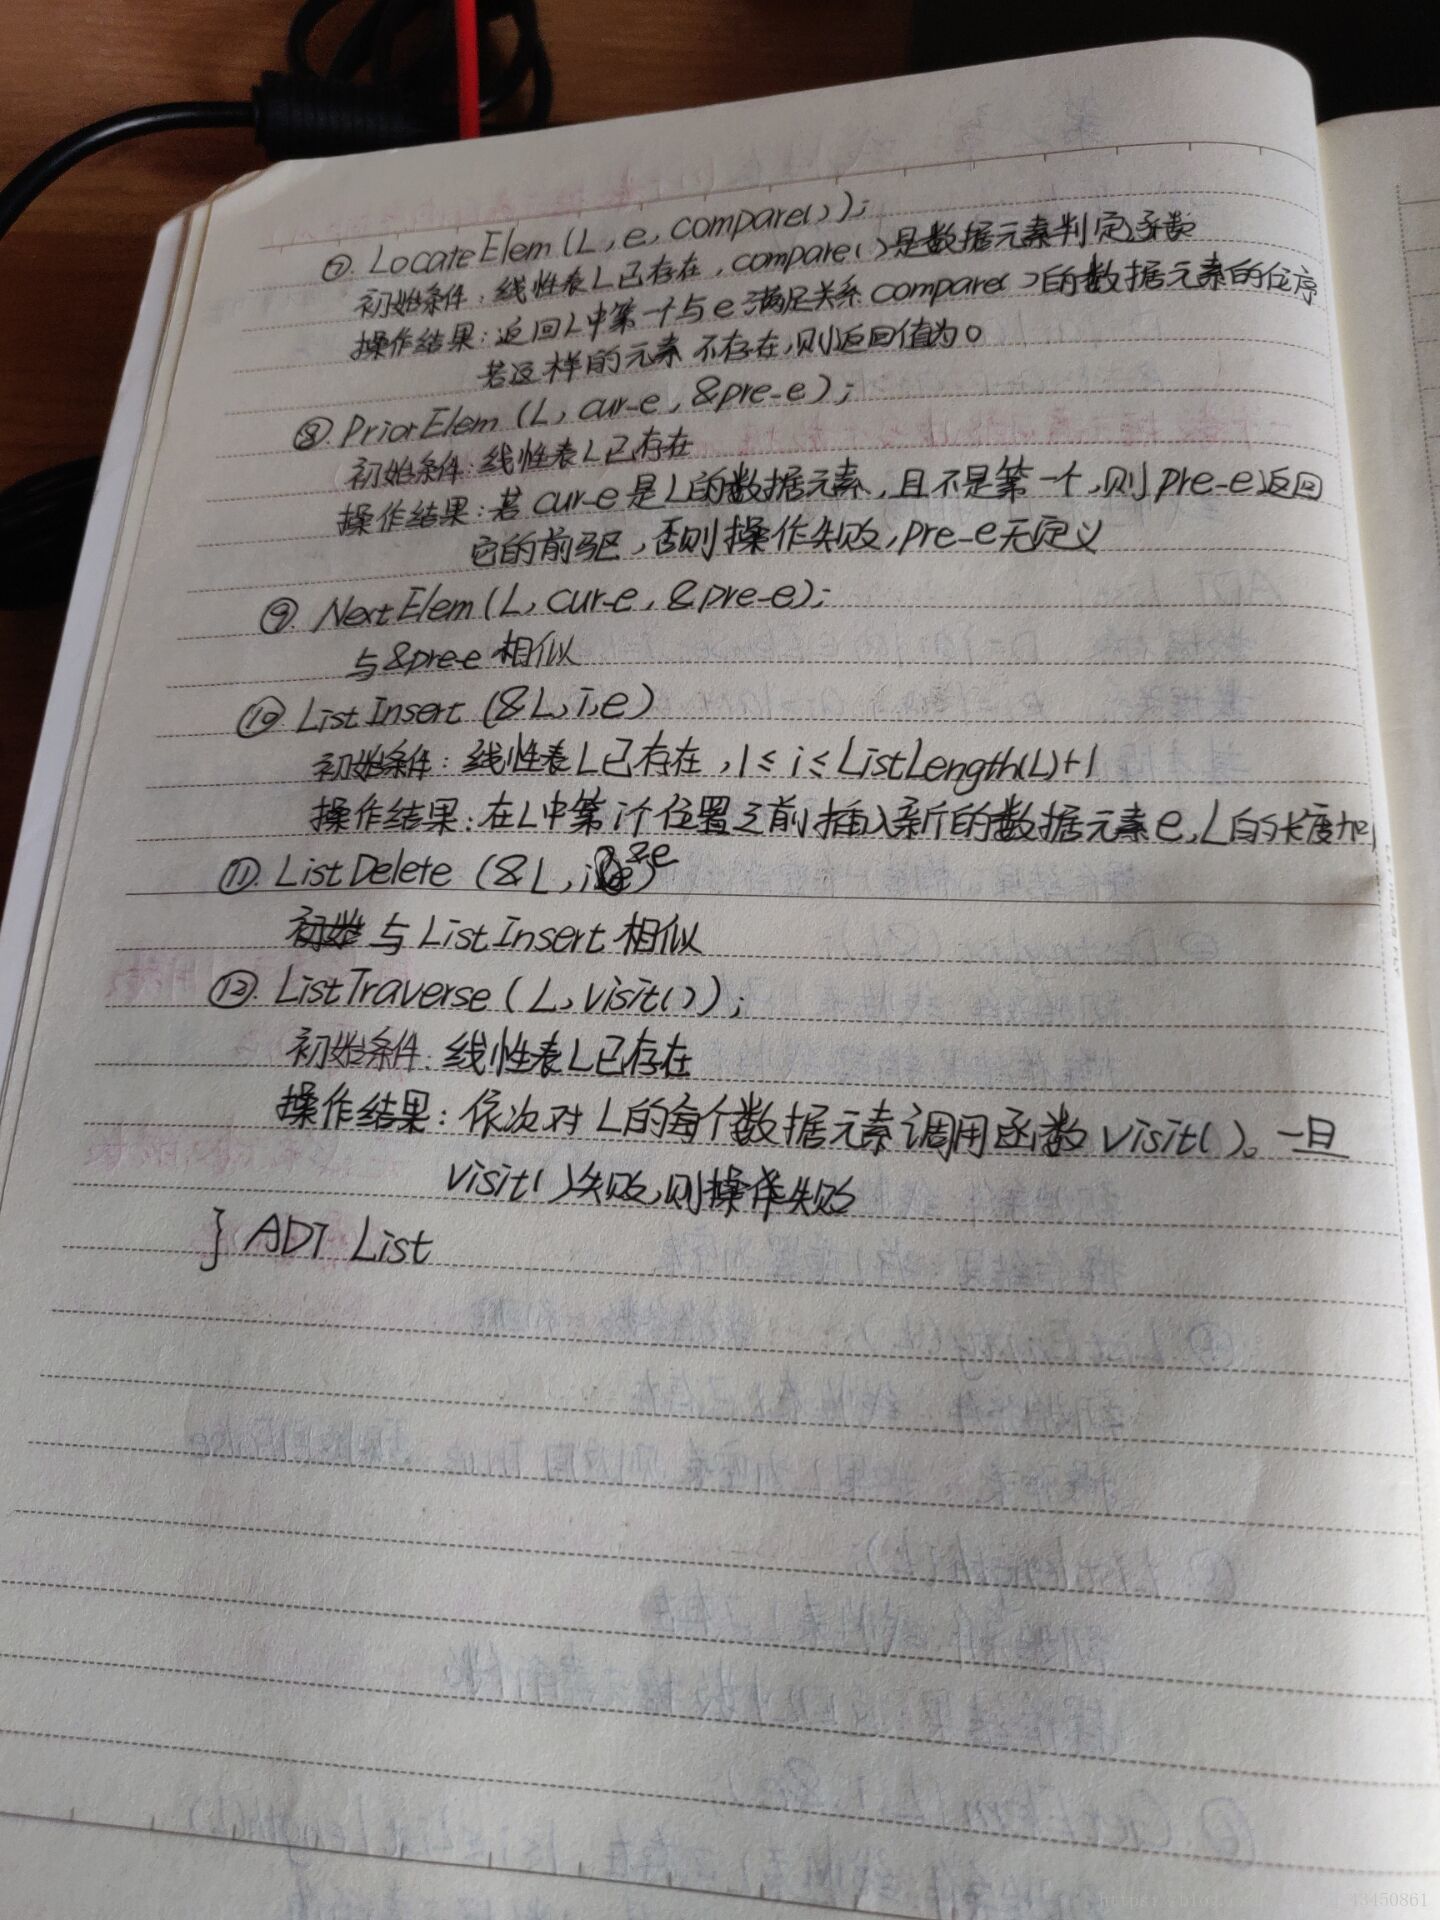 ⑦. LocateElem(L,e,compare());
初始条件:线性表L已存在,compare()是数据元素判定函数
操作结果:返回L中第一个与e满足关系compare()的数据元素的位序
若这样的元素不存在,则返回值为0
⑧. PriorElem(L,cur_e,&pre_e);
初始条件:线性表L已存在
操作结果:若cur_e是L的数据元素,且不是第一个,则pre_e返回
它的前驱,否则操作失败,pre_e无定义
⑨. NextElem(L,cur_e,&pre_e);
与&pre_e相似
⑩ ListInsert(&L,i,e)
初始条件:线性表L已存在,1≤i≤ListLength(L)+1
操作结果:在L中第i个位置之前插入新的数据元素e,L的长度加1
⑪. ListDelete(&L,i,&e)
初始 与ListInsert相似
⑫. ListTraverse(L,visit());
初始条件:线性表L已存在
操作结果:依次对L的每个数据元素调用函数visit()。一旦
visit()失败,则操作失败
} ADT List